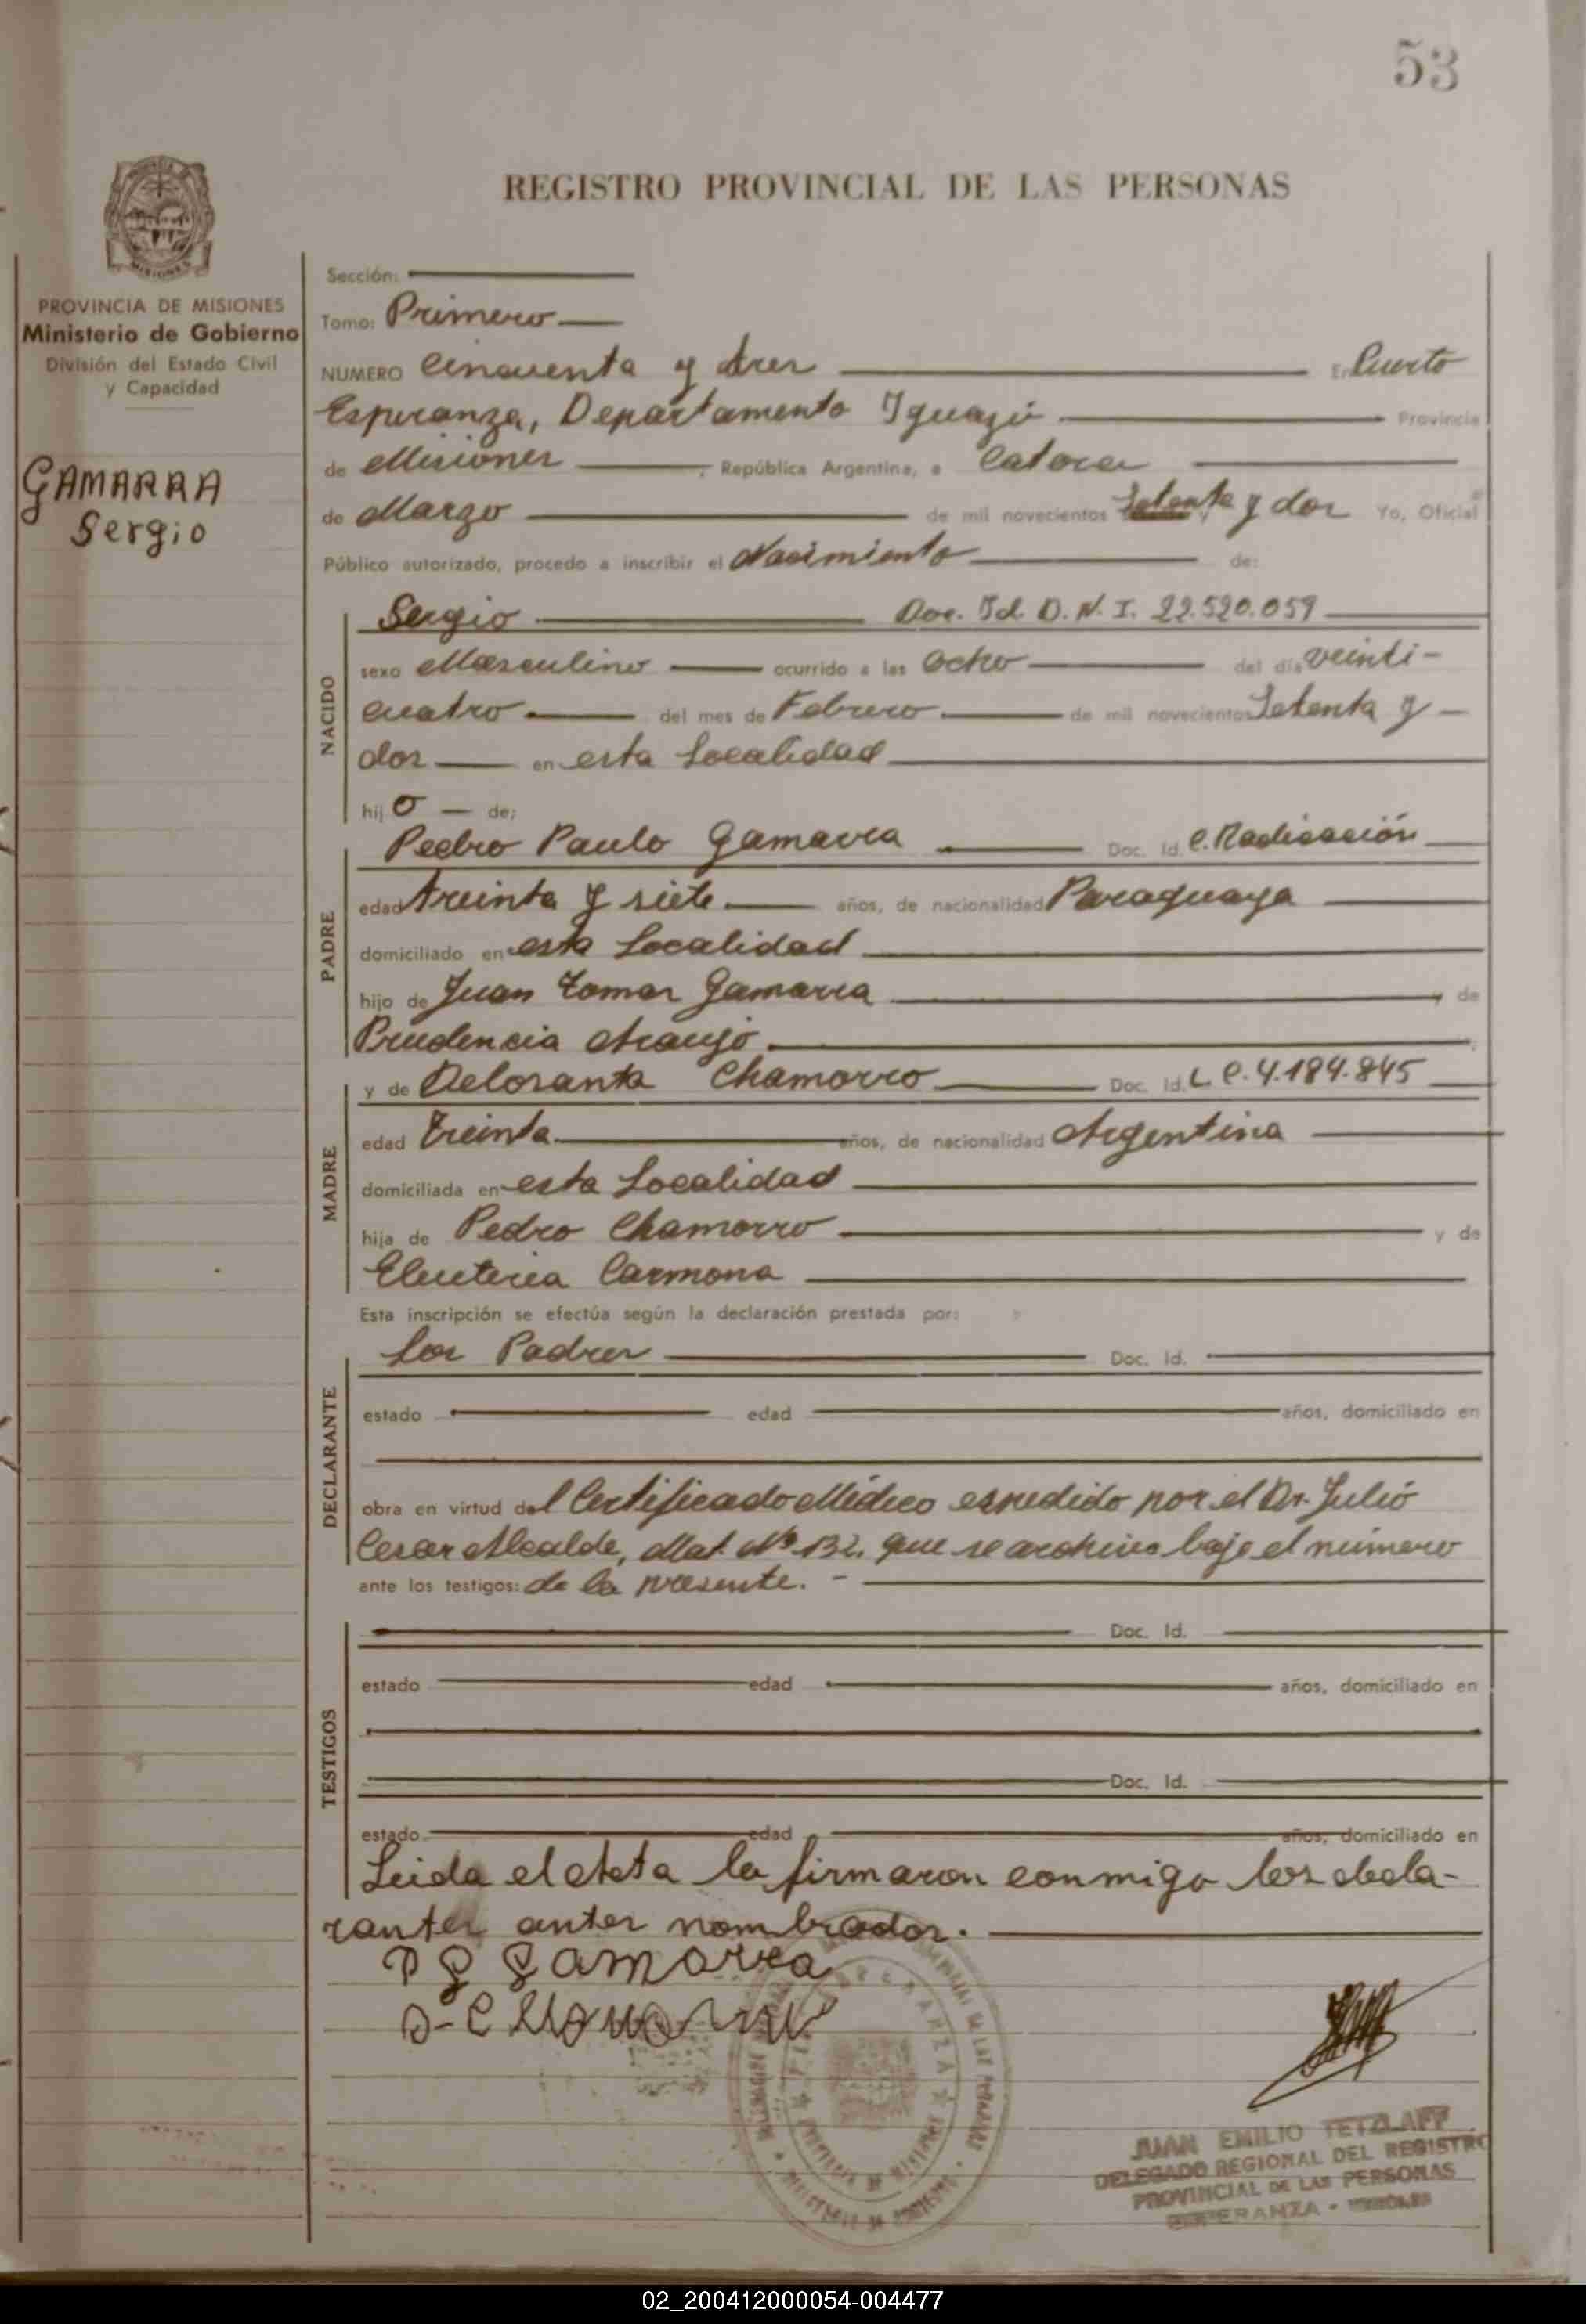 53
REGISTRO PROVINCIAL DE LAS PERSONAS
PROVINCIA DE MISIONES
Ministerio de Gobierno
División del Estado Civil
y Capacidad
GAMARRA
Sergio
Sección:
Tomo: Primero
NUMERO Cincuenta y tres En Puerto
Esperanza, Departamento Iguazú Provincia
de Misiones, República Argentina, a Catorce
de Marzo de mil novecientos Setenta y dos Yo, Oficial
Público autorizado, procedo a inscribir el Nacimiento de:
NACIDO
Sergio Doc. Id. D. N. I. 22.520.059
sexo Masculino ocurrido a las Ocho del día veinti-
cuatro del mes de Febrero de mil novecientos Setenta y -
dos en esta Localidad
hijo - de:
PADRE
Pedro Paulo Gamarra Doc. Id. C. Radicación
edad treinta y siete años, de nacionalidad Paraguaya
domiciliado en esta Localidad
hijo de Juan Tomas Gamarra y de
Prudencia Araujo
MADRE
y de Deloranta Chamorro Doc. Id. L C. 4.184.845
edad treinta años, de nacionalidad Argentina
domiciliada en esta Localidad
hija de Pedro Chamorro y de
Eleuteria Carmona
Esta inscripción se efectúa según la declaración prestada por:
DECLARANTE
Los Padres Doc. Id.
estado edad años, domiciliado en
obra en virtud del Certificado Médico espedido por el Dr. Julio
Cesar Alcalde, Mat. Nº 132. que se archiva bajo el número
ante los testigos: de la presente. -
TESTIGOS
Doc. Id.
estado edad años, domiciliado en
Doc. Id.
estado edad años, domiciliado en
Leida el Acta la firmaron conmigo los decla-
rantes antes nombrados.
P G Gamarra
JUAN EMILIO TETZLAFF
DELEGADO REGIONAL DEL REGISTRO
PROVINCIAL DE LAS PERSONAS
ESPERANZA - MISIONES
02_200412000054-004477